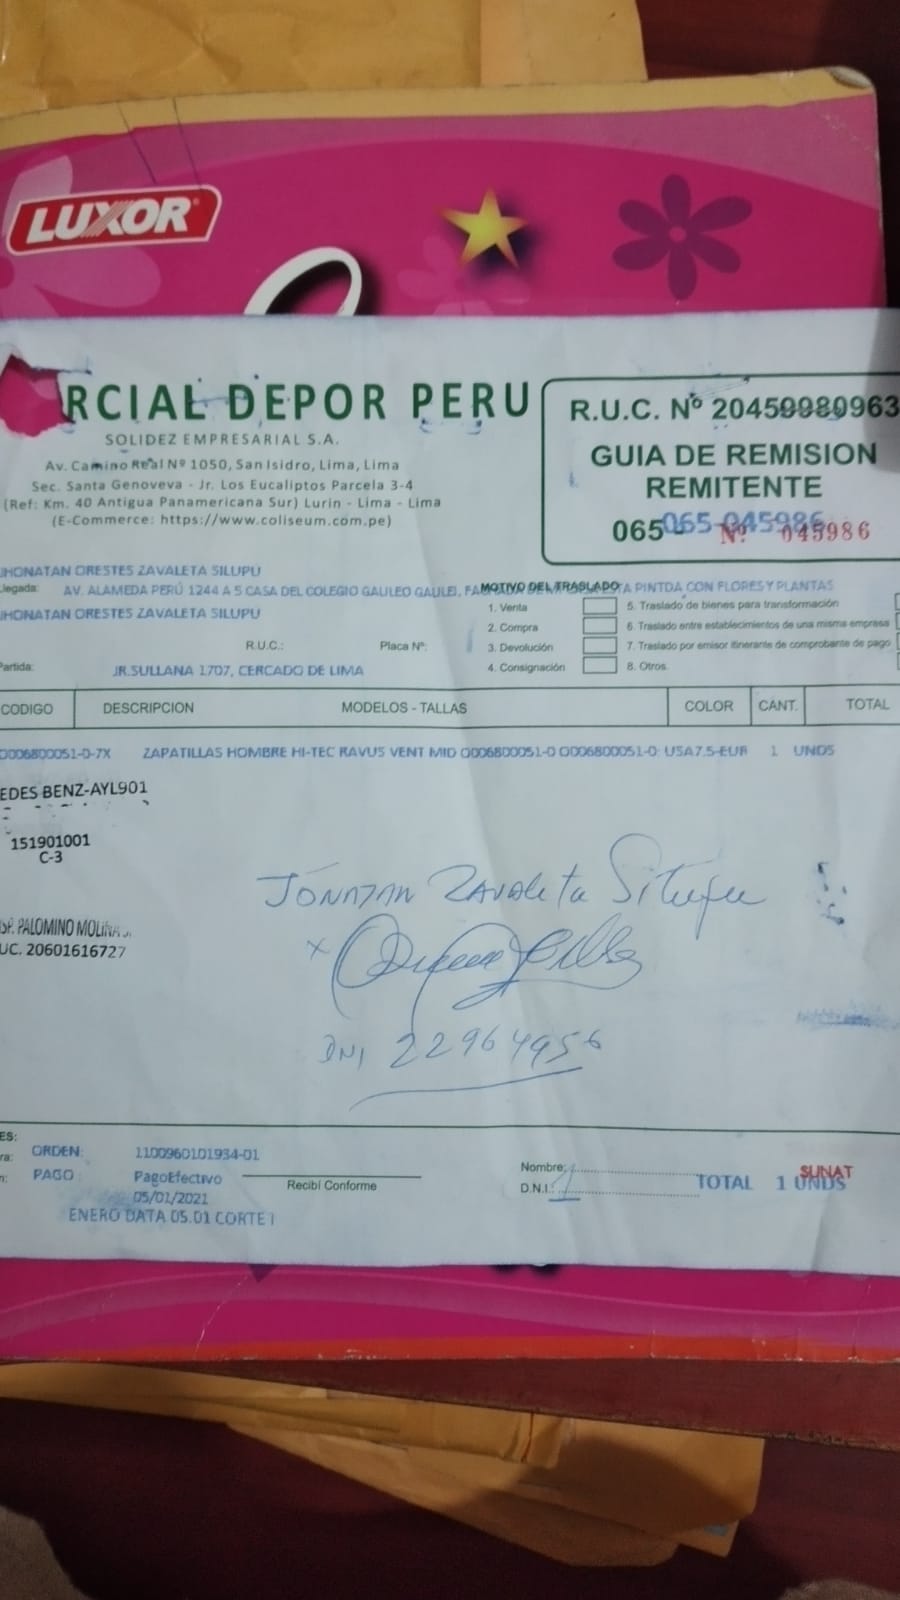 LUXOR
RCIAL DEPOR PERU
SOLIDEZ EMPRESARIAL S.A.
Av. Camino Real Nº 1050, San Isidro, Lima, Lima
Sec. Santa Genoveva - Jr. Los Eucaliptos Parcela 3-4
(Ref: Km. 40 Antigua Panamericana Sur) Lurin - Lima - Lima
(E-Commerce: https://www.coliseum.com.pe)
R.U.C. Nº 20459980963
GUIA DE REMISION
REMITENTE
065- 065-045986
Nº 045986
JHONATAN ORESTES ZAVALETA SILUPU
llegada: AV. ALAMEDA PERÚ 1244 A 5 CASA DEL COLEGIO GALILEO GALILEI, PINTDA CON FLORES Y PLANTAS
JHONATAN ORESTES ZAVALETA SILUPU
R.U.C.: Placa Nº:
Partida: JR.SULLANA 1707, CERCADO DE LIMA
MOTIVO DEL TRASLADO
1. Venta
2. Compra
3. Devolución
4. Consignación
5. Traslado de bienes para transformación
6. Traslado entre establecimientos de una misma empresa
7. Traslado por emisor itinerante de comprobante de pago
8. Otros.
CODIGO DESCRIPCION MODELOS - TALLAS COLOR CANT. TOTAL
O006800051-0-7X ZAPATILLAS HOMBRE HI-TEC RAVUS VENT MID O006800051-0 O006800051-0: USA7.5-EUR 1 UNDS
EDES BENZ-AYL901
151901001
C-3
SP. PALOMINO MOLINA J.
UC. 20601616727
JÓNATAN ZAVALETA Silupu
X
DNI 22964956
ES:
ra: ORDEN: 1100960101934-01
n: PAGO : PagoEfectivo
05/01/2021
ENERO DATA 05.01 CORTE I
Recibí Conforme
Nombre:
D.N.I.:
TOTAL 1 UNDS
SUNAT